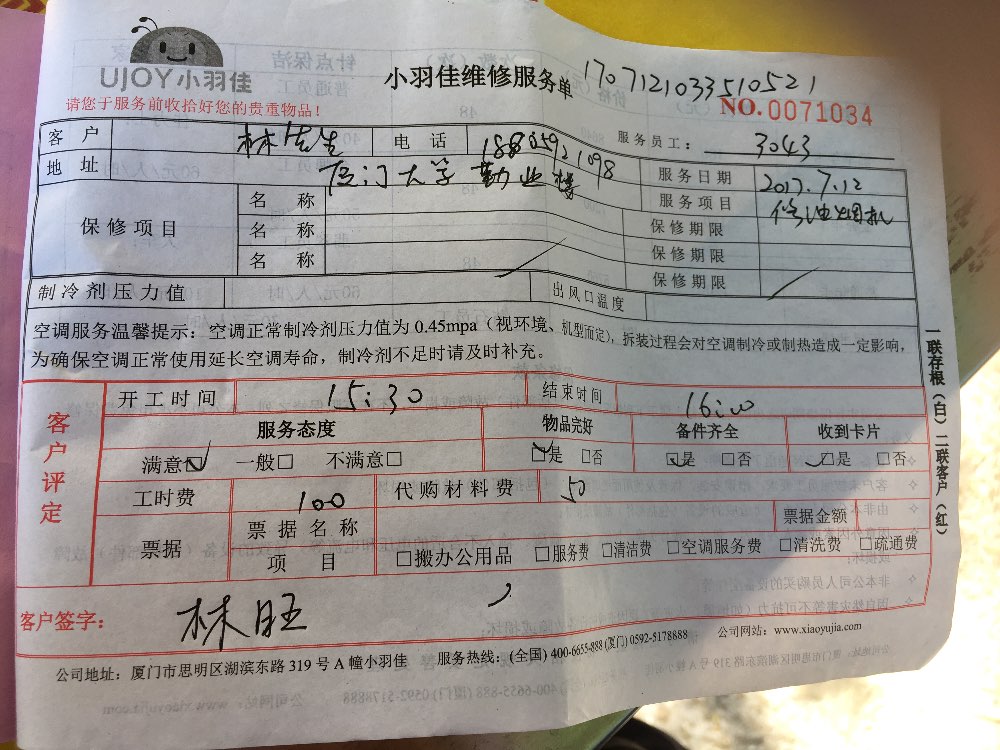 UJOY小羽佳
小羽佳维修服务单
1707121033510521
请您于服务前收拾好您的贵重物品!
NO.0071034
客户 林先生 电话 18805921098 服务员工: 3043
地址 厦门大学勤业楼 服务日期 2017.7.12
保修项目 名称 服务项目 修油烟机
名称 保修期限
名称 保修期限
保修期限
制冷剂压力值 出风口温度
空调服务温馨提示:空调正常制冷剂压力值为 0.45mpa(视环境、机型而定),拆装过程会对空调制冷或制热造成一定影响,
为确保空调正常使用延长空调寿命,制冷剂不足时请及时补充。
一联存根(白)二联客户(红)
客户评定
开工时间 15:30 结束时间 16:00
服务态度 物品完好 备件齐全 收到卡片
满意☑ 一般□ 不满意□ ☑是 □否 ☑是 □否 ☑是 □否
工时费 100 代购材料费 50
票据 票据名称 票据金额
项目 □搬办公用品 □服务费 □清洁费 □空调服务费 □清洗费 □疏通费
客户签字: 林旺
公司地址:厦门市思明区湖滨东路 319 号 A 幢小羽佳 服务热线:(全国) 400-6655-888 (厦门) 0592-5178888 公司网站:www.xiaoyujia.com